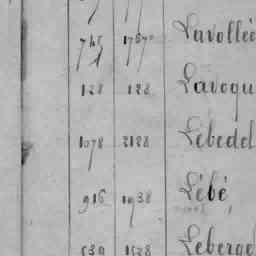 745 1767 Lavollée
128 128 Lavoqu
1078 2128 Lebedel
916 1938 Lébé
539 1528 Leberge